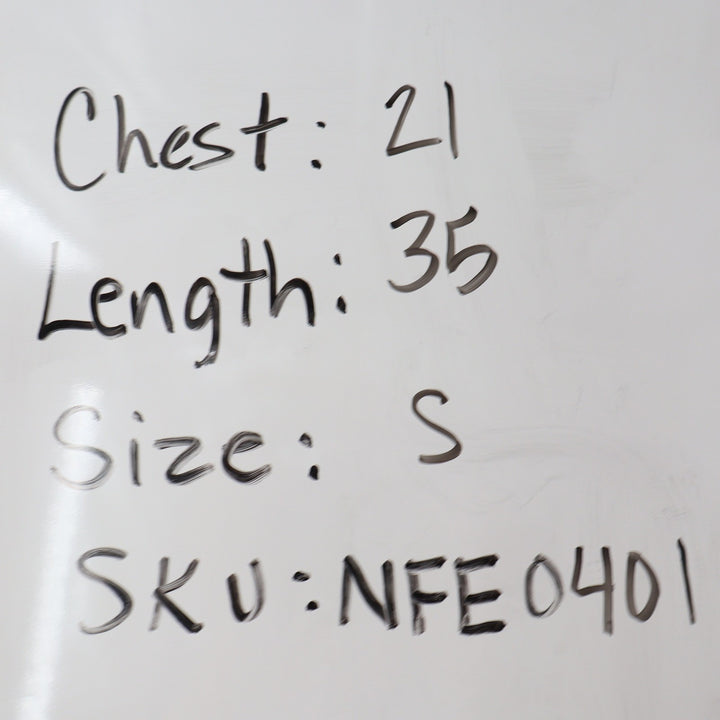 Chest: 21
Length: 35
Size: S
SKU: NFE0401